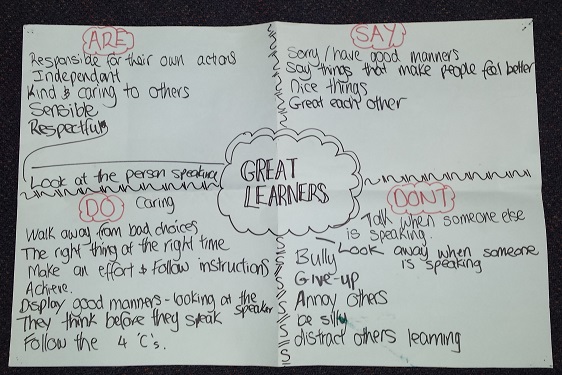 ARE
Responsible for their own actions
Independant
Kind & caring to others
Sensible
Respectful
Look at the person speaking
SAY
Sorry / have good manners
Say things that make people feel better
Nice things
Great each other
GREAT
LEARNERS
DO
Caring
Walk away from bad choices
The right thing at the right time
Make an effort & Follow instructions
Achieve.
Display good manners - looking at the speaker
They think before they speak
Follow the 4 'C's.
DONT
Talk when someone else
is speaking.
Look away when someone
is speaking
Bully
Give-up
Annoy others
be silly
distract others learning